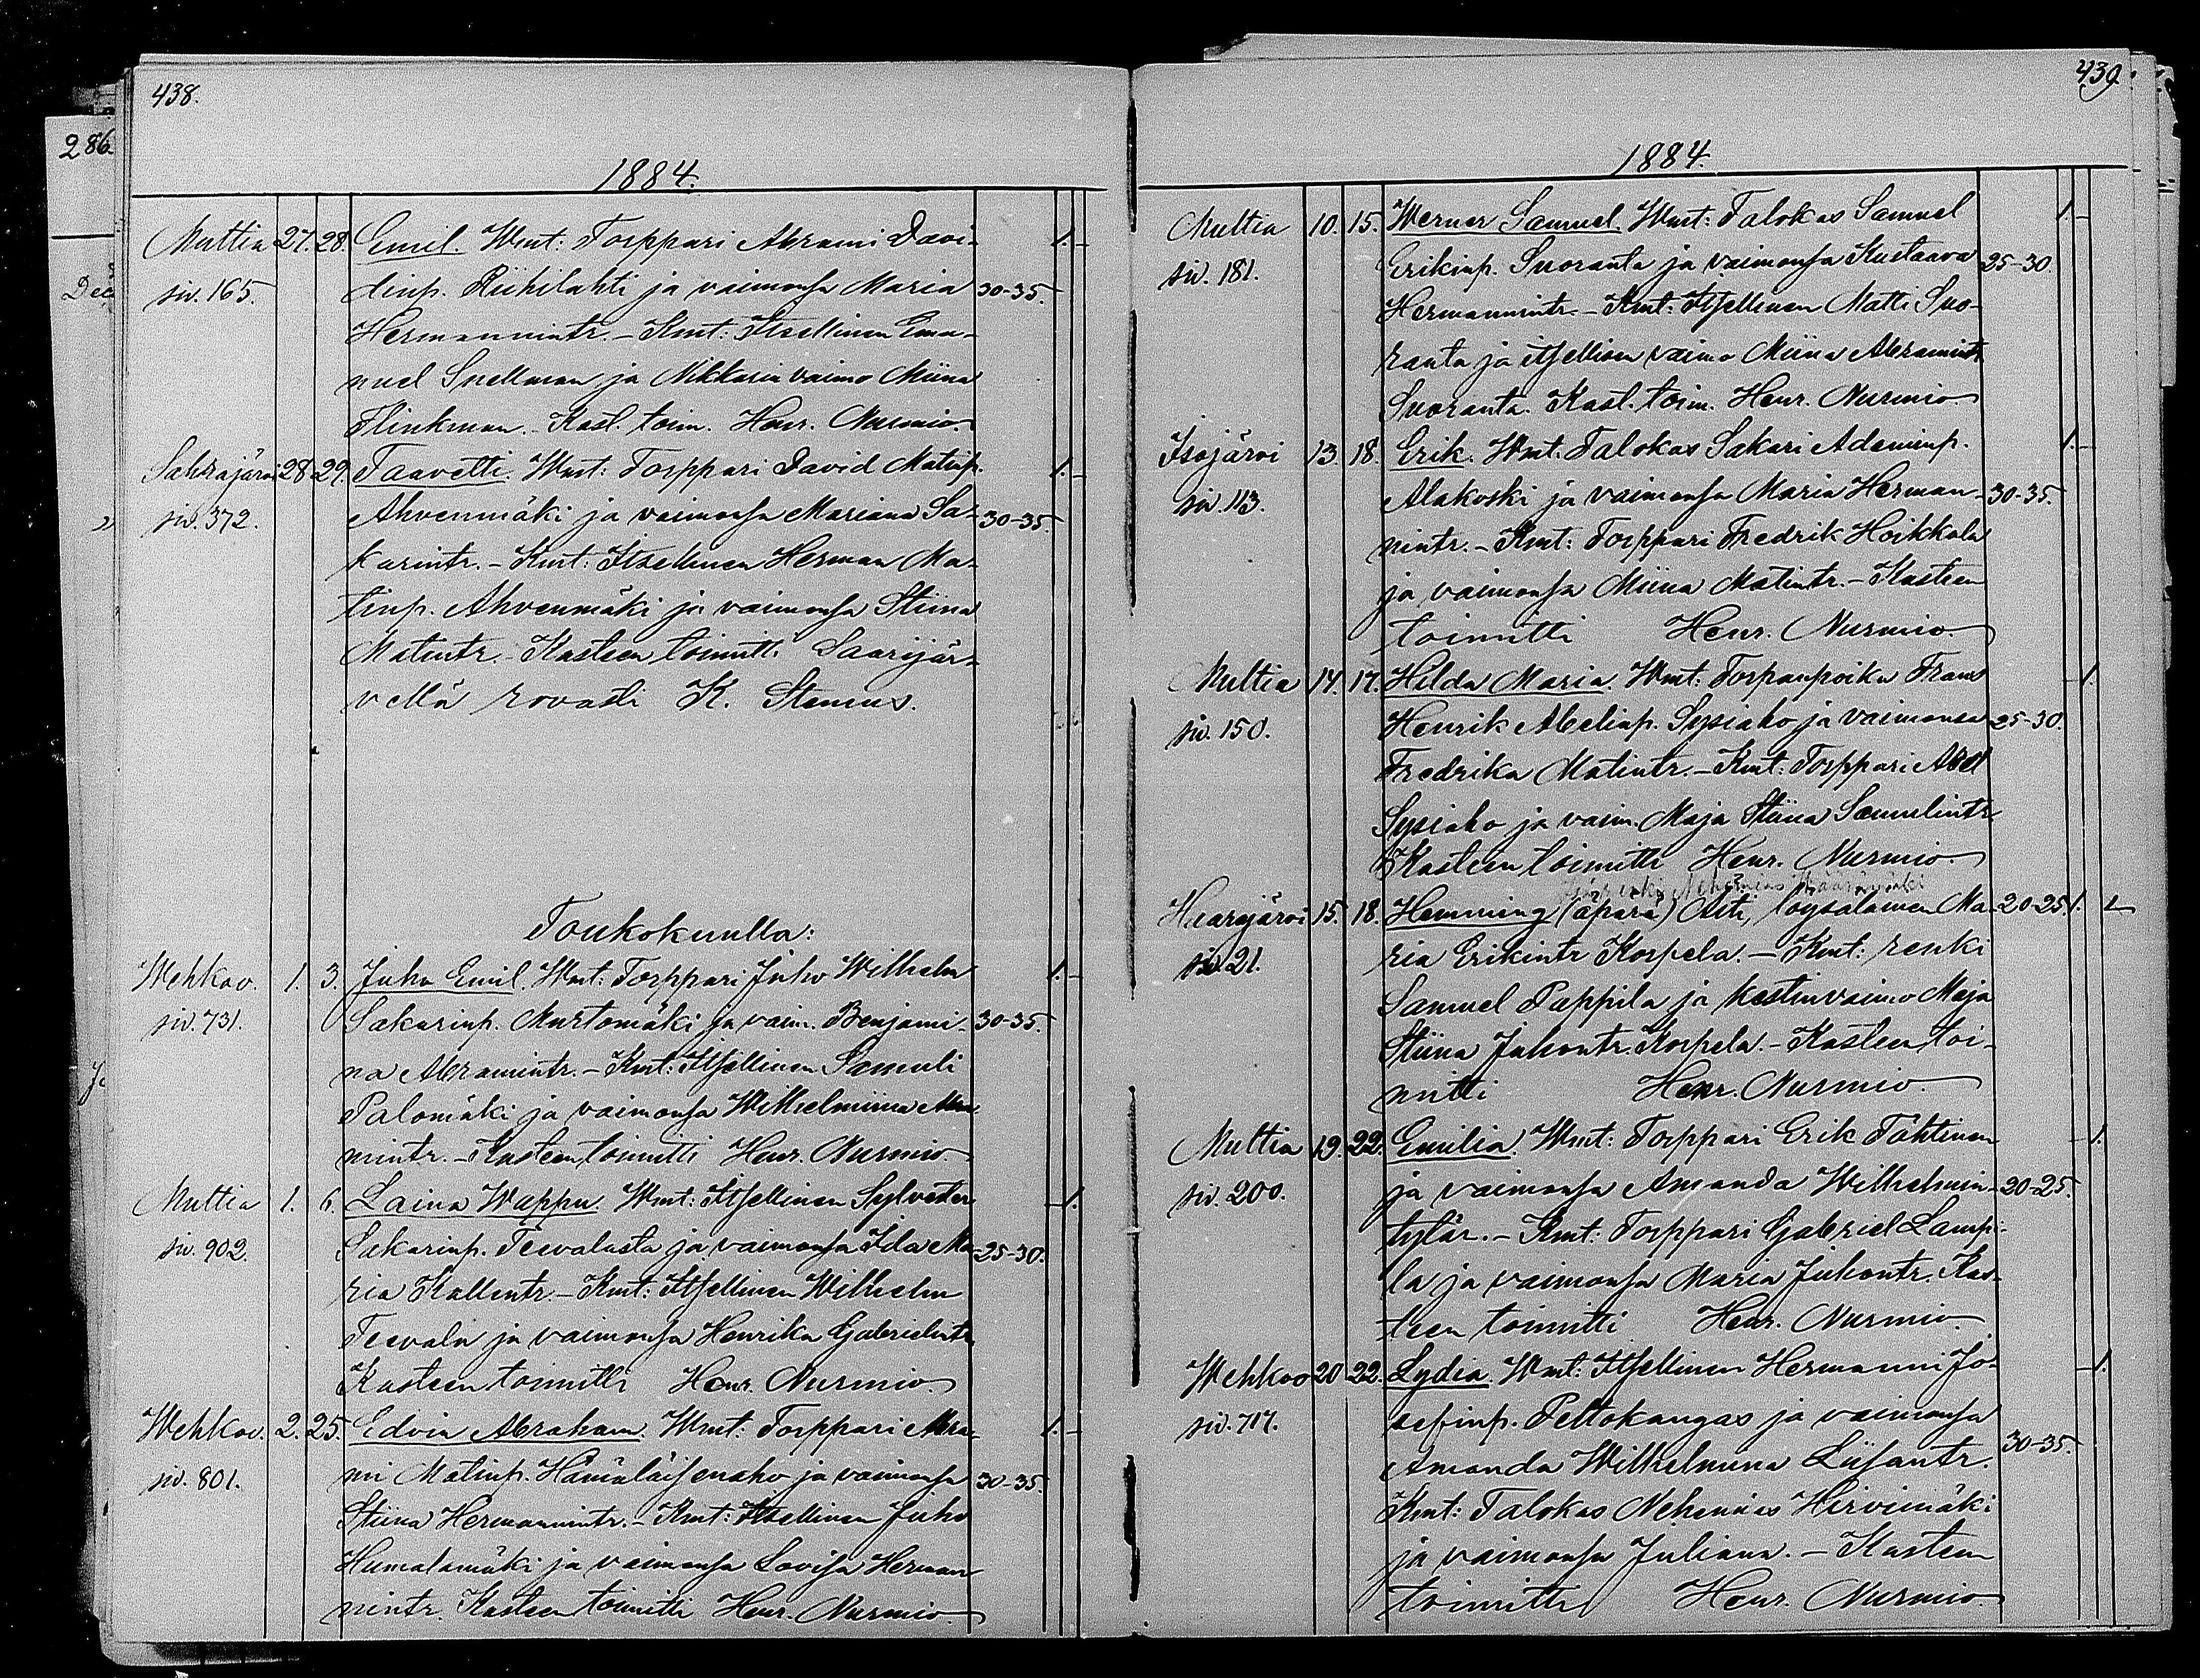 438.
286.
1884.
Multia 27. 28. Emil. Wmt: Torppari Abrami Davi- 1.
siv. 165. dinp. Riihilahti ja vaimonsa Maria 30-35.
Hermannintr. - Kmt: Itsellinen Ema-
nuel Snellman ja Nikkarin vaimo Miina
Flinkman. Kast. toim. Henr. Nurmio.
Sahrajärvi 28 29. Taavetti. Wmt: Torppari David Matinp. 1.
siv. 372. Ahvenmäki ja vaimonsa Mariana Sa- 30-35.
karintr. - Kmt: Itsellinen Herman Ma-
tinp. Ahvenmäki ja vaimonsa Stiina
Matintr. - Kasteen toimitti Saarijär-
vellä rovasti K. Stenius.
Toukokuulla:
Wehkoo. 1. 3. Juho Emil. Wmt: Torppari Juho Wilhelm 1.
siv. 731. Sakarinp. Murtomäki ja vaim. Benjami- 30-35.
na Abramintr. - Kmt: Itsellinen Samuli
Palomäki ja vaimonsa Wilhelmiina Abra-
mintr. - Kasteen toimitti Henr. Nurmio.
Multia 1. 6. Laina Wappu. Wmt: Itsellinen Sylvester 1.
siv. 902. Sakarinp. Teevalasta ja vaimonsa Ida Ma- 25-30.
ria Kallentr. - Kmt: Itsellinen Wilhelm
Teevala ja vaimonsa Henrika Gabrielintr
Kasteen toimitti Henr. Nurmio.
Wehkoo. 2. 25. Edvin Abraham. Wmt: Torppari Abra- 1.
siv. 801. mi Matinp. Hämäläisenaho ja vaimonsa 30-35.
Stiina Hermannintr. - Kmt: Itsellinen Juho
Humalamäki ja vaimonsa Lovisa Herman-
nintr. Kasteen toimitti Henr. Nurmio.
439.
1884.
Multia 10. 15. Werner Samuel. Wmt: Talokas Samuel 1.
siv. 181. Erikinp. Suoranta ja vaimonsa Kustaava 25-30.
Hermannintr. - Kmt: Itsellinen Matti Suo-
ranta ja itsellisen vaimo Miina Abramintr
Suoranta. Kast. toim. Henr. Nurmio
Isojärvi 13. 18. Erik. Wmt: Talokas Sakari Adaminp. 1.
siv. 113. Alakoski ja vaimonsa Maria Herman- 30-35.
nintr. - Kmt: Torppari Fredrik Hoikkala
ja vaimonsa Miina Matintr. - Kasteen
toimitti Henr. Nurmio.
Multia 14. 17. Hilda Maria. Wmt: Torpanpoika Frans 1.
siv. 150. Henrik Abelinp. Sysiaho ja vaimonsa 25-30.
Fredrika Matintr. - Kmt: Torppari Abel
Sysiaho ja vaim. Maja Stiina Samulintr
Kasteen toimitti Henr. Nurmio.
Nehemias
Huarejärvi 15. 18. Hemming (äpärä) Äiti, loysalainen Ma- 20-25. 1. 1
siv. 21. ria Erikintr Korpela. - Kmt: renki
Samuel Pappila ja kestinvaimo Maja
Stiina Juhontr. Korpela. - Kasteen toi-
mitti Henr. Nurmio.
Multia 19. 22. Emilia. Wmt: Torppari Erik Tähtinen 1.
siv. 200. ja vaimonsa Amanda Wilhelmin- 20-25.
tytär. - Kmt: Torppari Gabriel Lampi-
la ja vaimonsa Maria Juhontr. Kas-
teen toimitti Henr. Nurmio.
Wehkoo 20 22. Lydia. Wmt: Itsellinen Hermanni Jo- 1.
siv. 717. sefinp. Peltokangas ja vaimonsa
Amanda Wilhelmina Liisantr. 30-35.
Kmt: Talokas Nehemias Hirvimäki
ja vaimonsa Juliana. - Kasteen
toimitti Henr. Nurmio